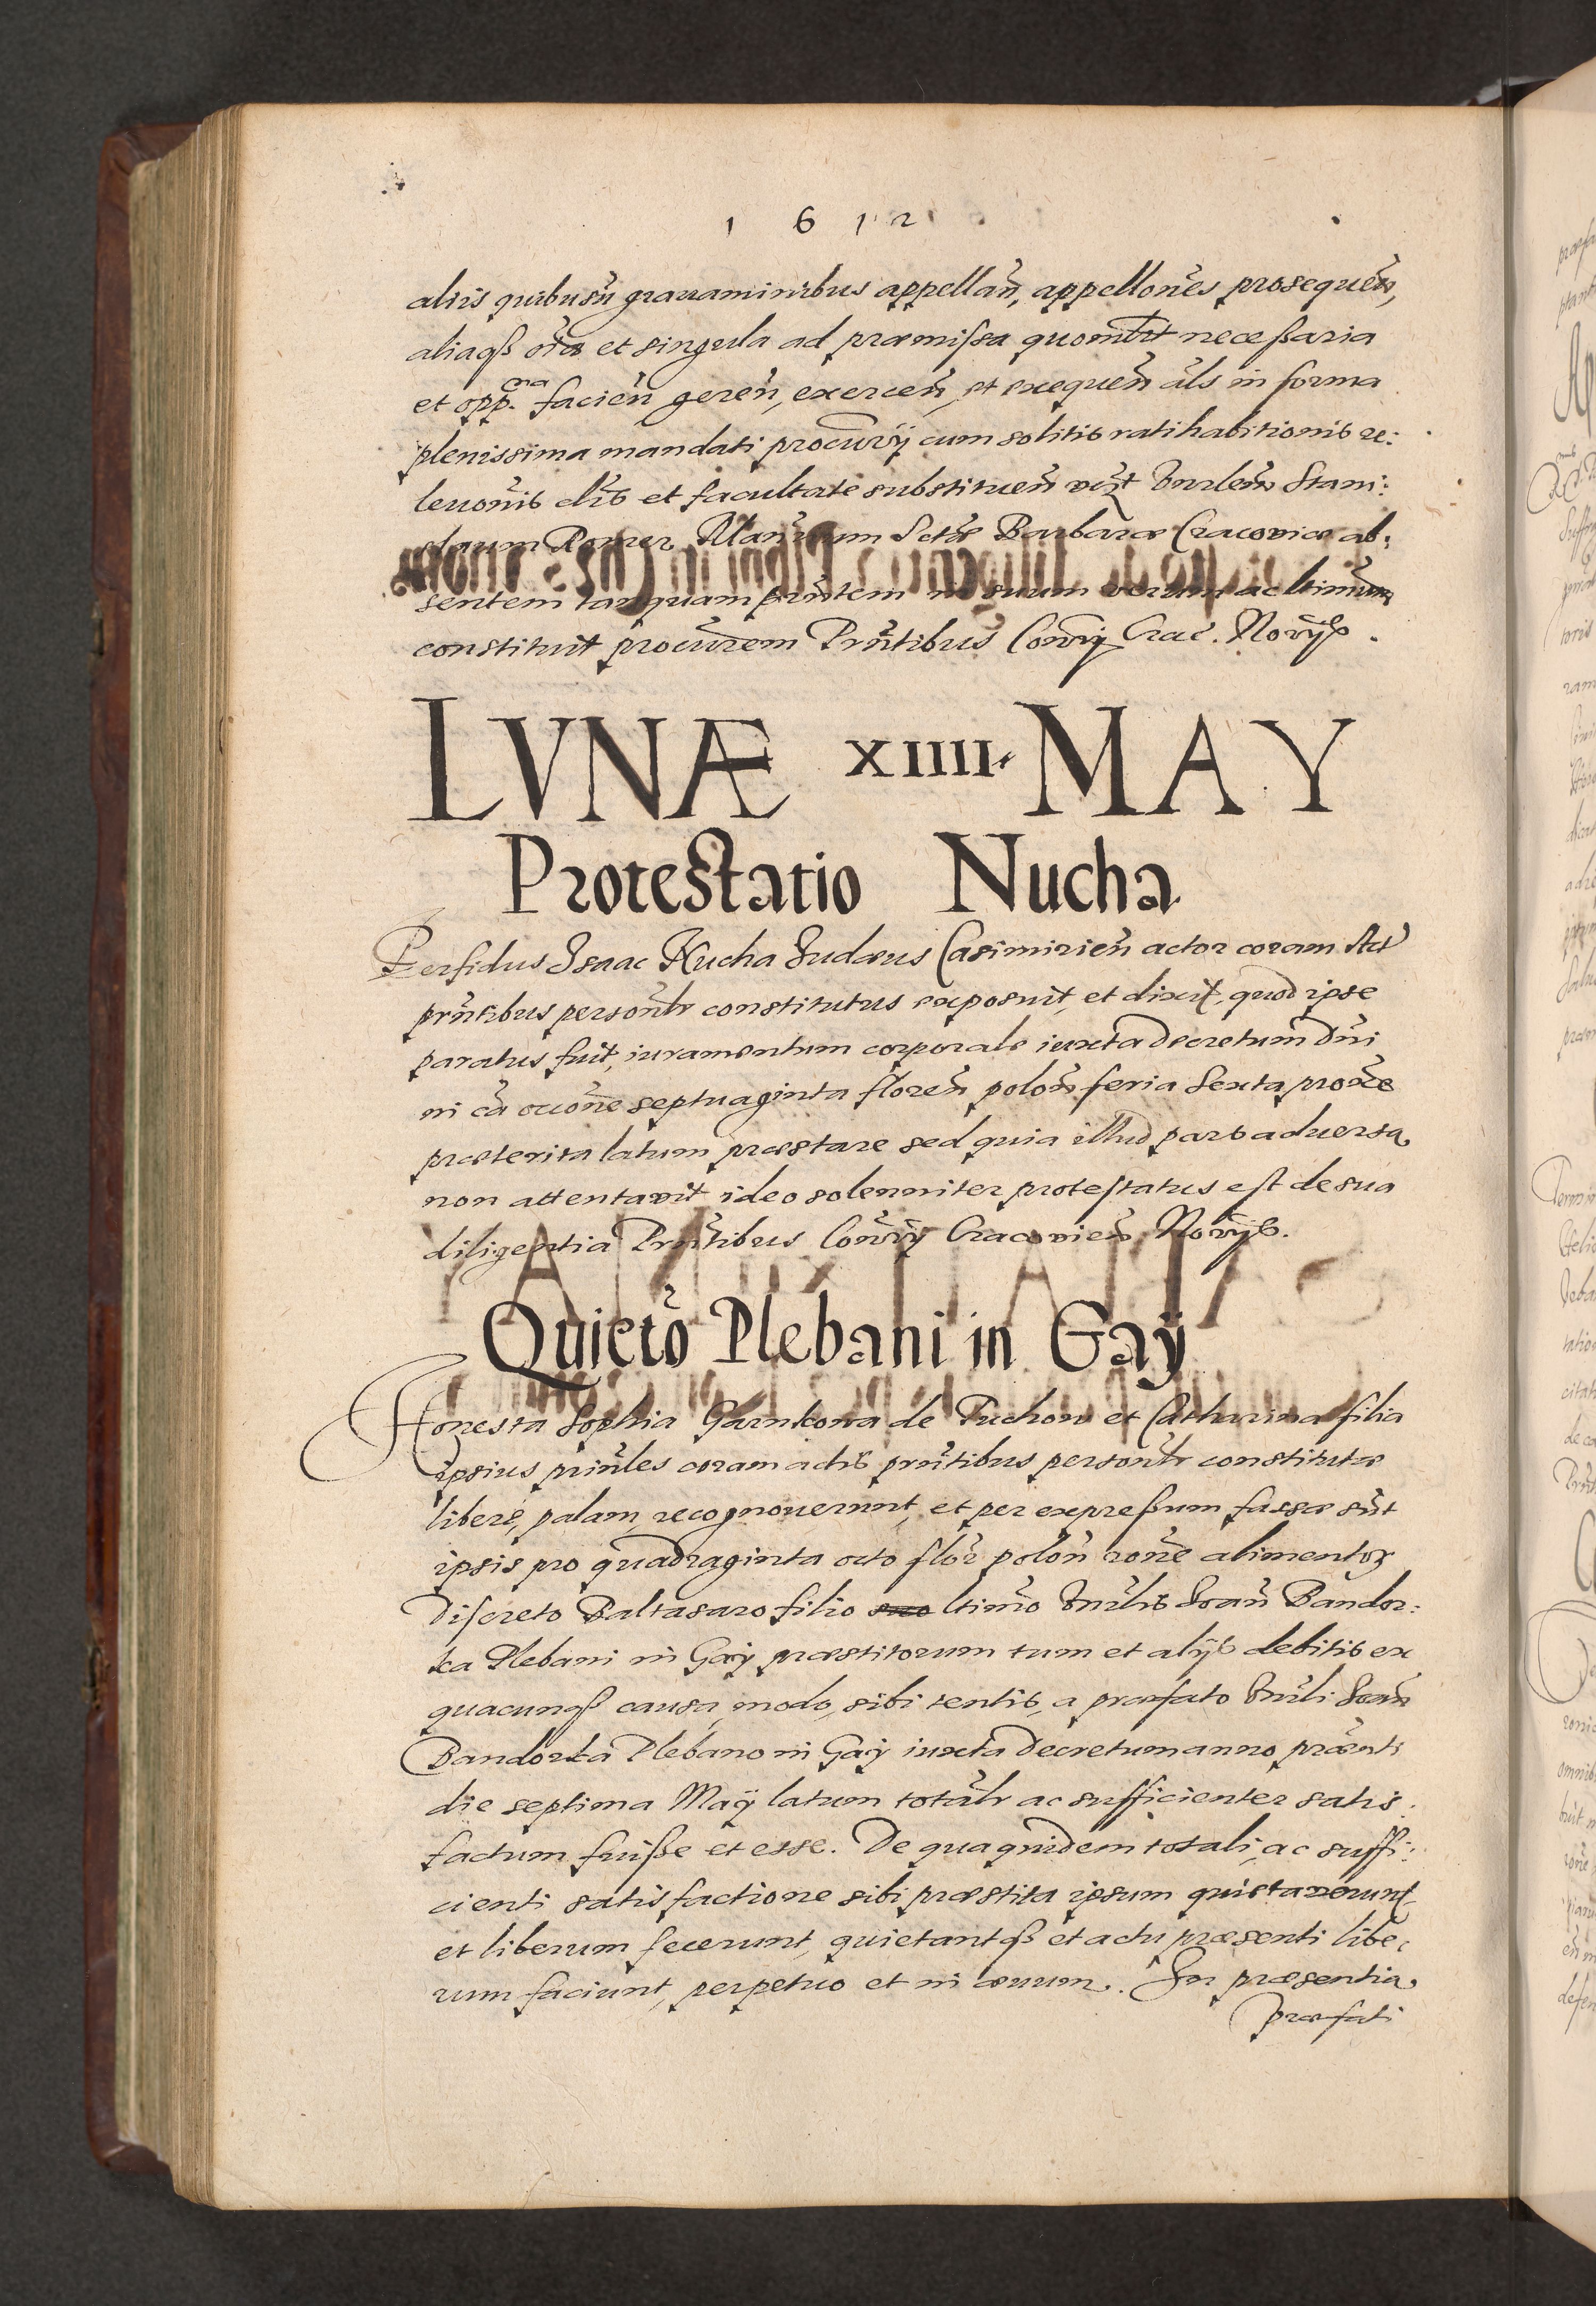 1612
aliis quibusṽ grauaminibus appellañ, appelloñes prosequeñ,
aliaqß oĩa et singula ad præmissa quomlt necessaria
et opp.na facieñ gereñ, exerceñ, et exequeñ als in forma
plenissima mandati procurỹ cum solitis ratihabitionis re:
leuoñis clis et facultate substitueñ Vñlem Stani:
slaum Romer Mañrium Sctæ Barbaræ Cracoviæ ab:
sentem tanquam pñtem in suum verum ac ltimum
constituit procurem Pñtibus Conrỹ Crac. Norijs.
LVNÆ XIIII. MAY
Protestatio Nucha
Perfidus Isaac Nucha Judæus Casimirieñ actor coram Act
pñtibus personlr constitutus exposuit, et dixit, quod ipse
paratus fuit, iuramentum corporale iuxta Decretum Dñi
in câ occoñe septuaginta floreñ poloñ feria Sexta proxe
præterita latum præstare sed quia illud pars aduersa
non attentavit ideo solenniter protestatus est de sua
diligentia Pñtibus Conrỹ Cracovieñ Norijs.
Quietõ Plebani in Gaÿ
Honesta Sophia Garnkowa de Puchow et Catharina filia
ipsius prinles coram actis pñtibus personlr constitutæ
libere, palam, recognouerunt, et per expressum fassæ sũt
ipsis pro quadraginta octo flor poloñ roñe alimentoꝝ
Discreto Baltasaro filio suo ltimo Vñlis Joañ Bandor:
ka Plebani in Gaÿ præstitorum tum et alijs debitis ex
quacunqß causa, modo, sibi tentis, a præfato Vñli Joañ
Bandorka Plebano in Gaÿ iuxta Decretum anno præñti
die septima Maÿ latum totalr ac sufficienter satis.
factum fuisse et esse. De qua quidem totali, ac suffi:
cienti satisfactione sibi præstita ipsum quietauerunt
et liberum fecerunt, quietantqß et actu præsenti libe:
rum faciunt, perpetuo et in æuum. In præsentia
præfati